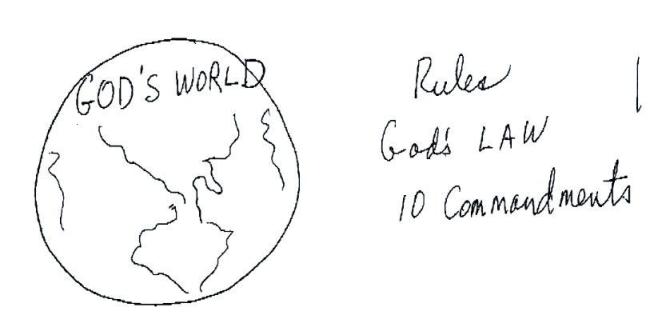 GOD'S WORLD
Rules
God's LAW
10 Commandments